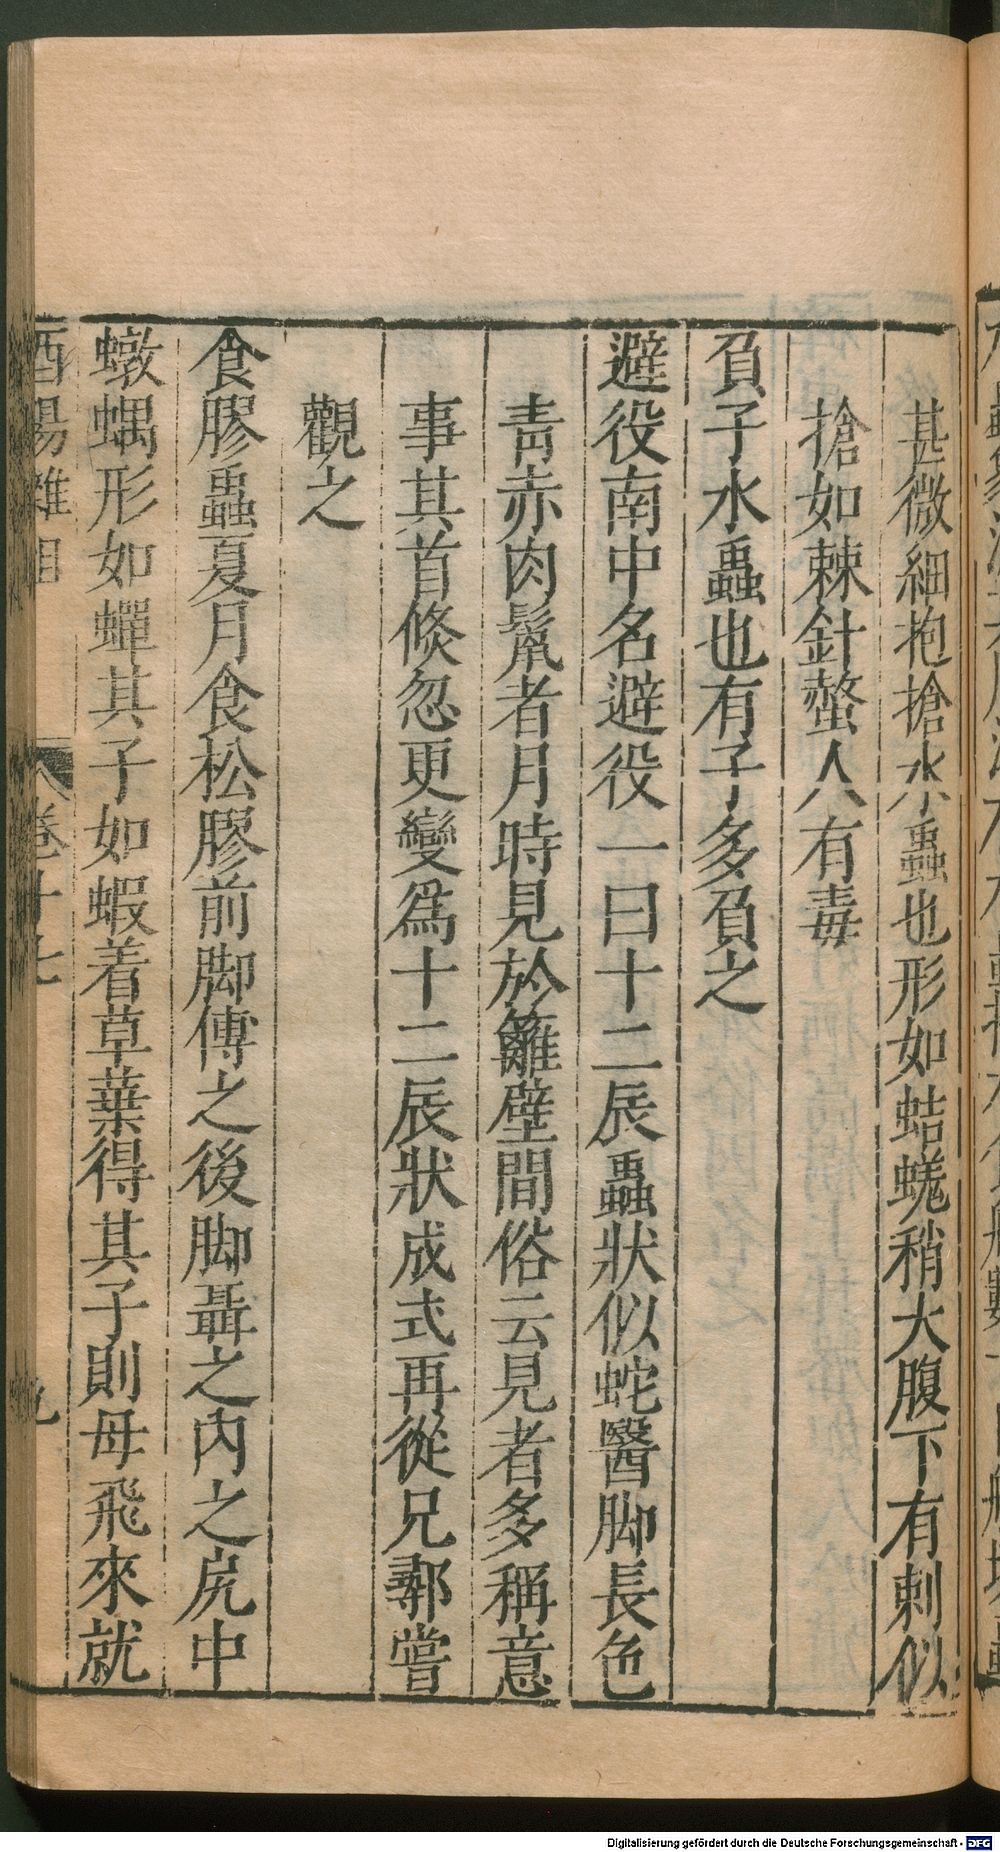 甚微細抱搶水蟲也形如蛣蜣稍大腹下有刺似
搶如棘針螫人有毒
負子水蟲也有子多負之
避役南中名避役一曰十二辰蟲狀似蛇醫脚長色
青赤肉鬣者月時見於籬壁間俗云見者多稱意
事其首倏忽更變爲十二辰狀成式再從兄鄩嘗
觀之
食膠蟲夏月食松膠前脚傅之後脚聶之內之尻中
蠍蝺形如蟬其子如蝦着草葉得其子則母飛來就
酉陽雜俎
卷十七
九
Digitalisierung gefördert durch die Deutsche Forschungsgemeinschaft - DFG